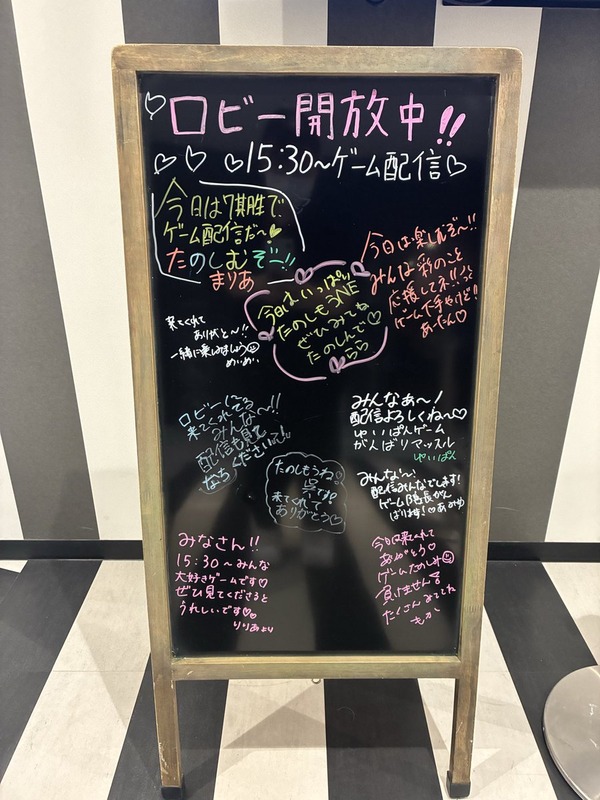 ロビー開放中!!
15:30~ゲーム配信♡
今日は7期生で
ゲーム配信だ~!
たのしむぞー!!
まりあ
今日は楽しむぞ~!!
みんは彩のこと
応援してネ!!
ゲーム下手やけど!
あーたん♡
今日はいっぱい
たのしもうNE
ぜひみてね
たのしんで♡
らら
来てくれて
ありがと~!!
一緒に楽しみましょう
めいめい
ロビーに
来てくれてる
みんな~!!
配信も見て
ください
なち
みんなぁ~!
配信よろしくね~♡
ゆいぱんゲーム
がんばりマッスル
ゆいぱん
たのしもうね♡
呉です!
来てくれて
ありがとう♡
みんな~!
配信みんなでします!
ゲーム隊長がん
ばります!♡あみゆ
みなさん!!
15:30~みんな
大好きゲームです♡
ぜひ見てくださると
うれしいです♡
りりあより
今日は来てくれて
ありがとう♡
ゲームたのしみ
負けません
たくさんみててね
もか